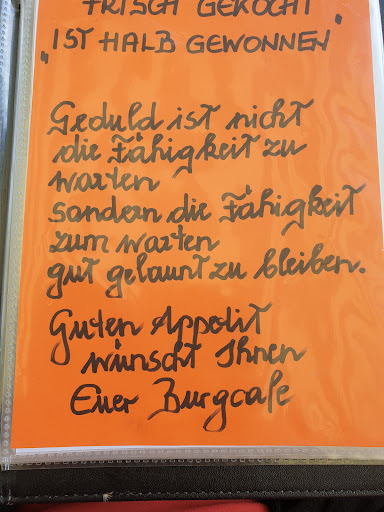 FRISCH GEKOCHT
„IST HALB GEWONNEN"
Geduld ist nicht
die Fähigkeit zu
warten
sondern die Fähigkeit
zum warten
gut gelaunt zu bleiben.
Guten Appetit
wünscht Ihnen
Euer Burgcafe